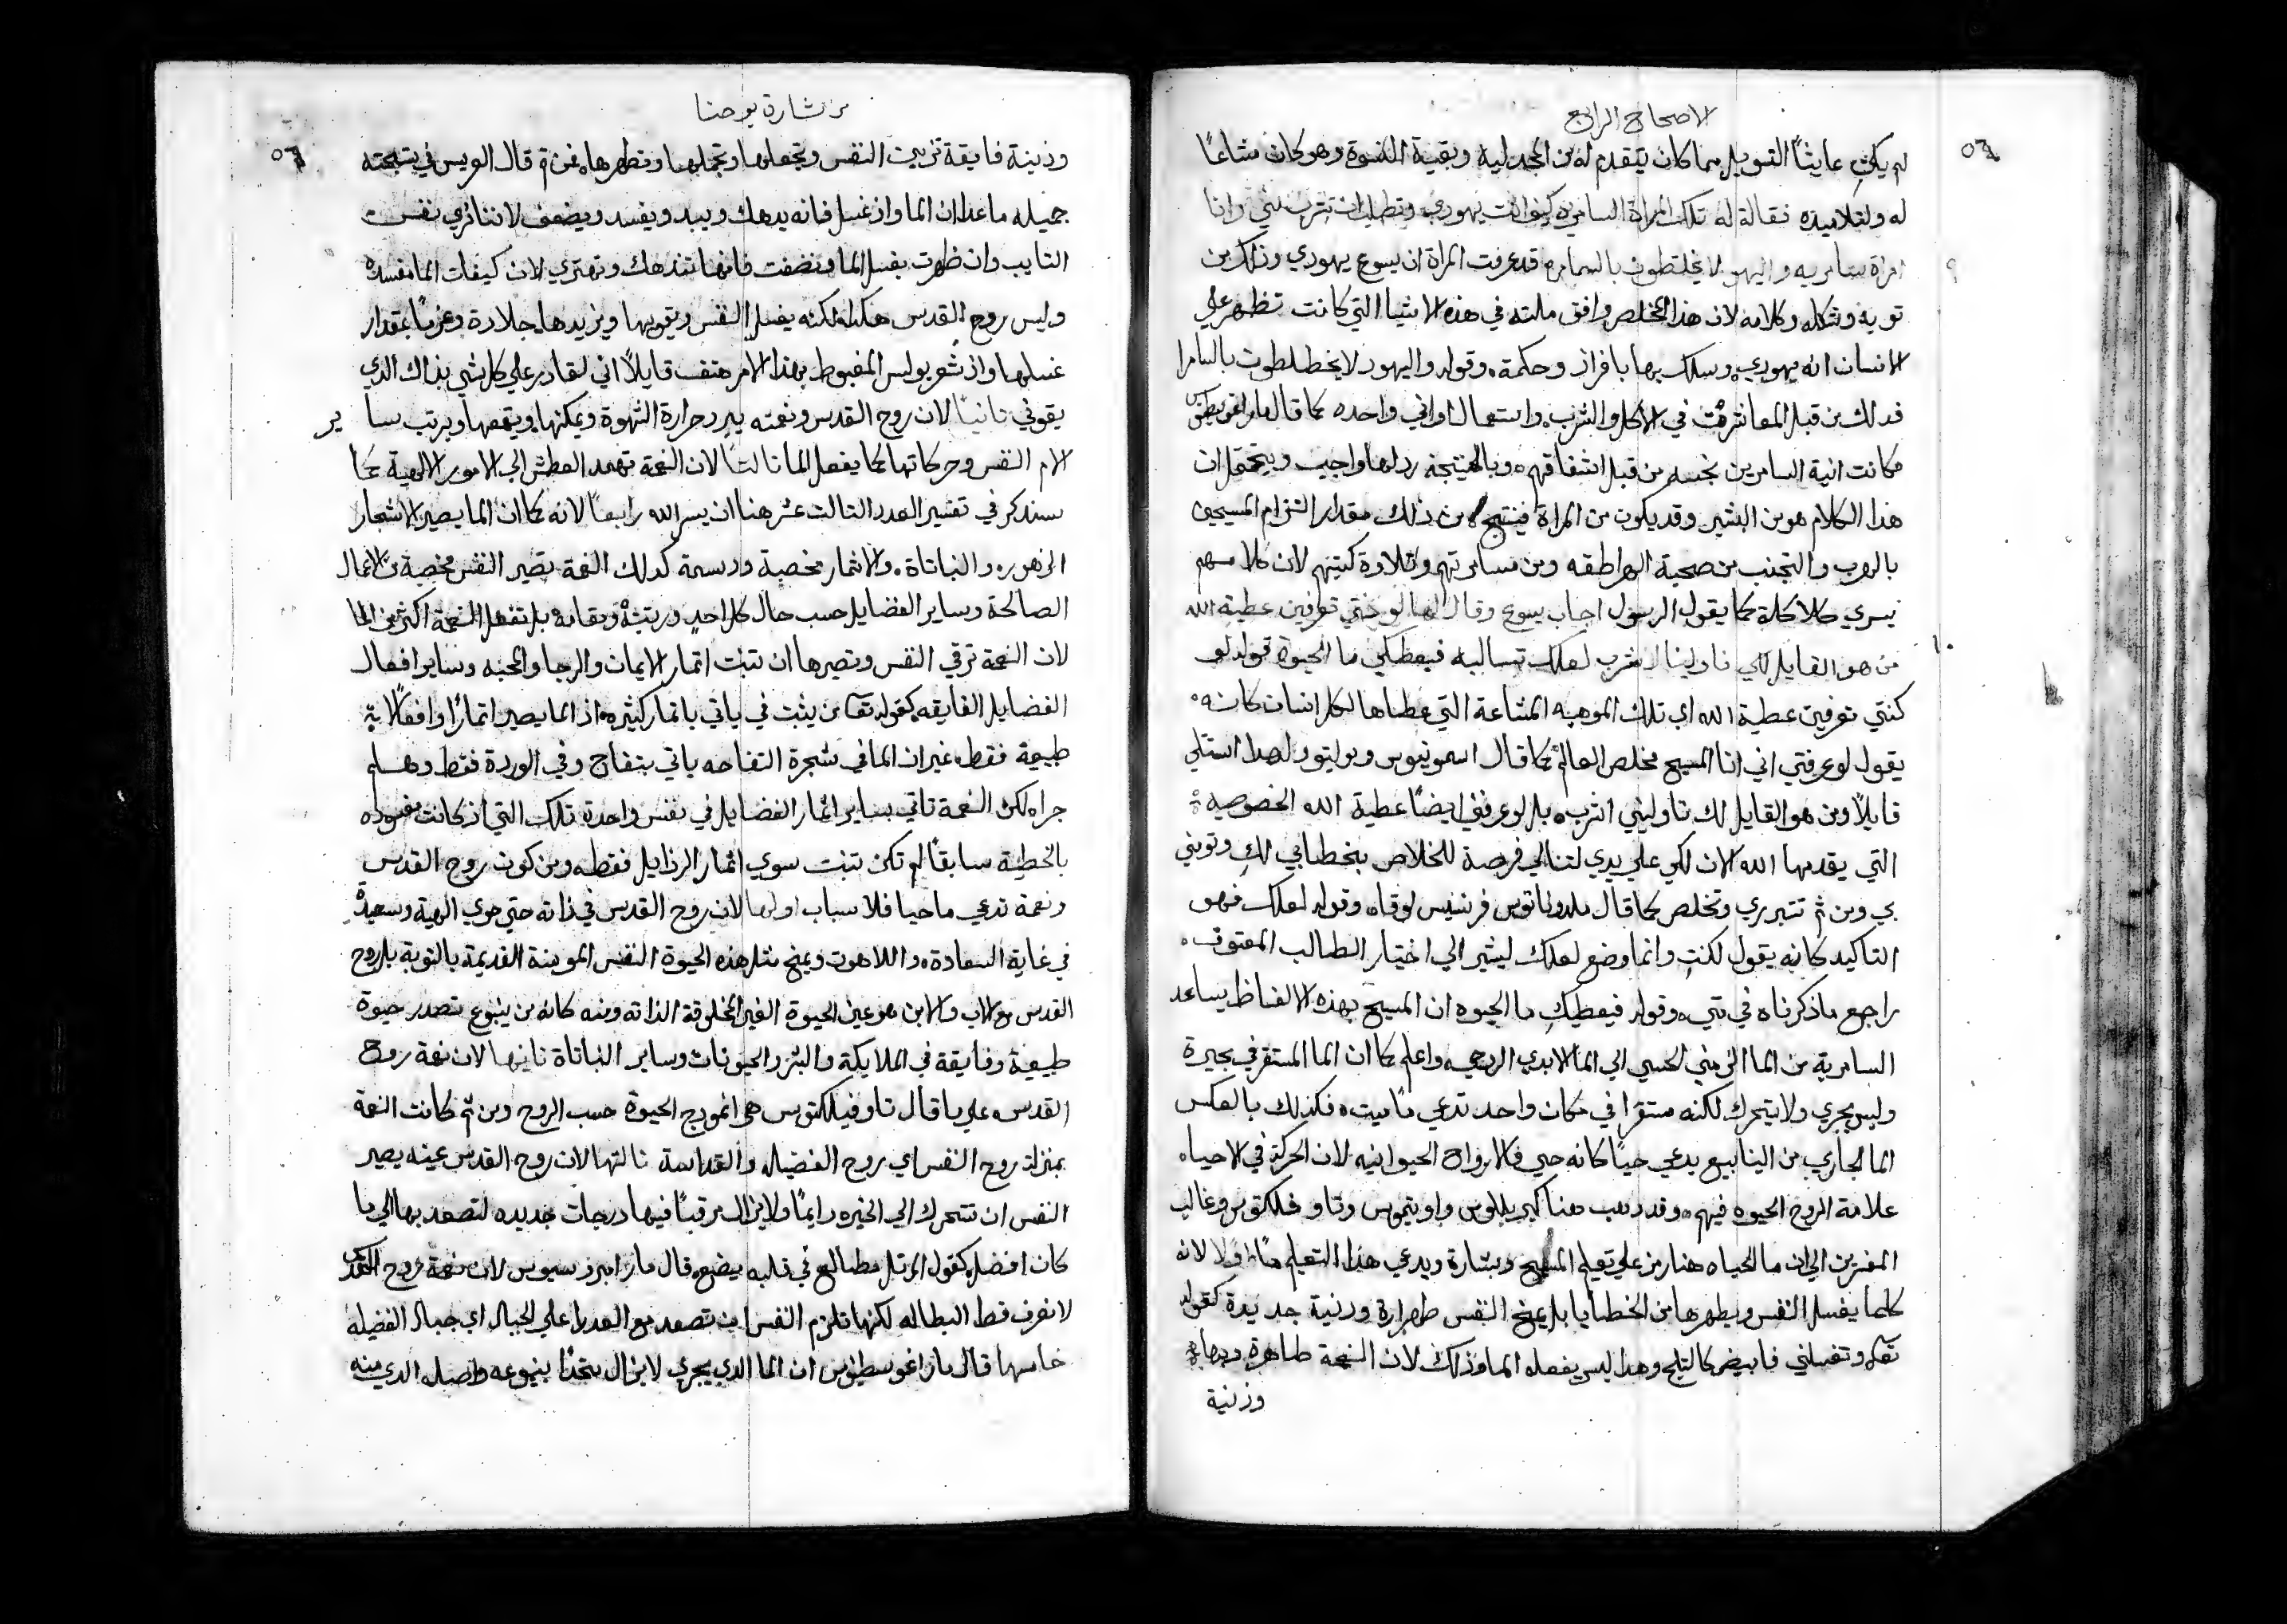 الاصحاح الرابع
لم يكن عايشًا القوبل مما كان يتقدم له من المجدلية وبقية النسوة وهو كان مشاعًا
له ولتلاميذه فقالة له تلك المراة السامرية كيف وانت يهودي وتطلب ان تشرب مني وانا
امراة سامريه واليهود لا يختلطون بالسامره قد عرفت المراة ان يسوع يهودي وذلك من
ثوبه وشكله وكلامه لان هذا المخلص وافق ملته في هذه الاشيا التي كانت تظهر علي
الانسان انه يهودي وسلك بها بافراز وحكمة وقوله واليهود لا يخطلطون بالسامرا
فدلك من قبل المعاشرة في الاكل والشرب واستعمال اواني واحده كما قال مار اغوسطينوس
فكانت انية السامرين نجسه من قبل اشفاقهم وبالنتيجة ردلها واجب ويحتمل ان
هذا الكلام هو من البشير وقد يكون من المراة فينتج من ذلك مقدار التزام المسيحين
بالهرب والتجنب من صحبة الهراطقه ومن مسامرتهم وتلاوة كتبهم لان كلامهم
يسري كالاكلة كما يقول الرسول اجاب يسوع وقال لها لو كنتي تعرفين عطية الله
من هو القايل لكي ناوليني لاشرب لعلك تساليه فيعطيكي ما الحيوة قوله لو
كنتي تعرفين عطية الله اي تلك الموهبه المشاعة التي عطاها لكل انسان كانه
يقول لو عرفتي اني انا المسيح مخلص العالم كما قال اسمونيوس وبوليتور لهدا استلي
قايلًا ومن هو القايل لك ناوليني اشرب بل لو عرفتي ايضًا عطية الله الخصوصية
التي يقدمها الله الان لكي علي يدي لتنالي فرصة للخلاص بخطابي لكِ وتومني
بي ومن ثم تتبرري وتخلص كما قال ملدوناتوس فرنسيس لوقا وقوله لعلك فهو
التاكيد كانه يقول لكنتِ وانما وضع لعلك ليشير الي اختيار الطالب المعتوق
راجع ما ذكرناه في متي وقوله فيعطيكِ ما الحيوه ان المسيح بهذه الالفاظ يساعد
السامرية من الما الزمني الحسي الي الما الابدي الروحي واعلم كما ان الما المستقر في بحيرة
وليس يجري ولا يتحرك لكنه مستقرا في مكان واحد تدعي مًا ميت فكذلك بالعكس
الما الجاري من الينابيع يدعي حيًا كانه حي فكالارواح الحيوانيه لان الحركة في الاحيا
علامة الروح الحيوه فيهم وقد ذهب هنا كيريللوس واوتيموس وتاوفيلكتوس وغالب
المفسرين الي ان ما الحياه هنا رمز علي تعليم المسيح وبشارة ويدعي هذا التعليم مًا اولا لانه
كلما يغسل النفس ويطهرها من الخطايا بل يمنح النفس طهارة وزنية جديدة كقوله
تعالي وتغسلني فابيض كالثلج وهذا ليس يفعله الما وذلك لان النعمة طاهرة وبهاة
وزنية
من بشارة يوحنا
وزينة فايقة تزين النفس وتجعلها وتجملها وتطهرها فمن ثم قال الويس في تسبحته
جميله ما عدا ان الما واذ غسل فانه يدهك ويبد ويفسد ويضعف لاننا نري نفس
التايب وان ظهرت بغسل الما وتضفت فانها تندهك وتهتري لان كيفات الما مفسدة
وليس روح القدس هكذا لكنه يغسل النفس ويقويها ويزيدها جلادة وعزمًا بمقدار
غسلها واذ شعر بولس المغبوط بهذا الامر هتف قايلاً اني لقادر علي كل شي بذاك الذي
يقوني ثانيًا لان روح القدس ونعمته يبرد حرارة الشهوة ويمكنها ويقمعها ويرتب ساير
الام النفس وحركاتها كما يفعل الما ثالثًا لان النعمة تهمد العطش الي الامور الالهية كما
سنذكر في تفسير العدد الثالث عشر هنا ان يسر الله رابعًا لانه كما ان الما يصير الاشجار
الزهوره والنباتاة والاثمار مخصبة ودسمة كدلك النعمة تصير النفس مخصبة من الاعمال
الصالحة وساير الفضايل حسب حال كل احد ورتبته ومقامه بل تفعل النعمة اكثر من الما
لان النعمة ترقي النفس وتصيرها ان تنبت اثمار الايمان والرجا والمحبه وساير افعال
الفضايل الفايقه كقوله تعا من يثبت في ياتي باثمار كثيره اذ الما يصير اثمارًا وافعالًا
طبيعة فقط غير ان الما في شجرة التفاحه ياتي بتفاح وفي الوردة فقط وهلم
جرا لكن النعمة تاتي بساير اثمار الفضايل في نفس واحدة تلك التي اذ كانت مفسوده
بالخطية سابقًا لم تكن تنبت سوي اثمار الرذايل فقط ومن كون روح القدس
ونعمة تدعي ما حيا فلاسباب اولها لان روح القدس في ذاته حتي حوي الهية وسعيدة
في غاية السعادة واللاهوت ويمنح مثل هذه الحيوة النفس المومنة القديمة بالتوبة بل روح
القدس مع الاب والابن هو عين الحيوة الغير المخلوقة الذاته ومنه كانه من ينبوع تصدر حيوة
طبيعية وفايقة في الملايكة والبشر والحيونات وساير النباتاة ثانيها لان نعمة روح
القدس علي ما قال تاوفيلكتوس هي انموذج الحيوة حسب الروح ومن ثم كانت النعمة
بمنزلة روح النفس اي روح الفضيله والقداسة ثالثها لان روح القدس عينه يصير
النفس ان تتحرك الي الخير دايمًا ولا يزال مرقبًا فيها درجات جديده لتصعد بها الي ما
كان افضل كقول المرتل مطالع في قلبه يضع قال مار امبروسيوس لان نعمة روح القدس
لا تعرف قط البطاله لكنها تلزم النفس ان تصعد مع العدرا علي الجبال اي جبال الفضيله
خامسها قال مار اغوسطينوس ان الما الدي يجري لا يزال متحدًا بينبوعه واصله الدي منه